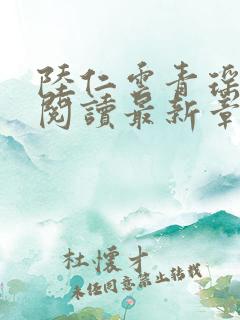 陸仁雲青瑤
閱讀最新章
杜懷才
未經同意禁止轉載